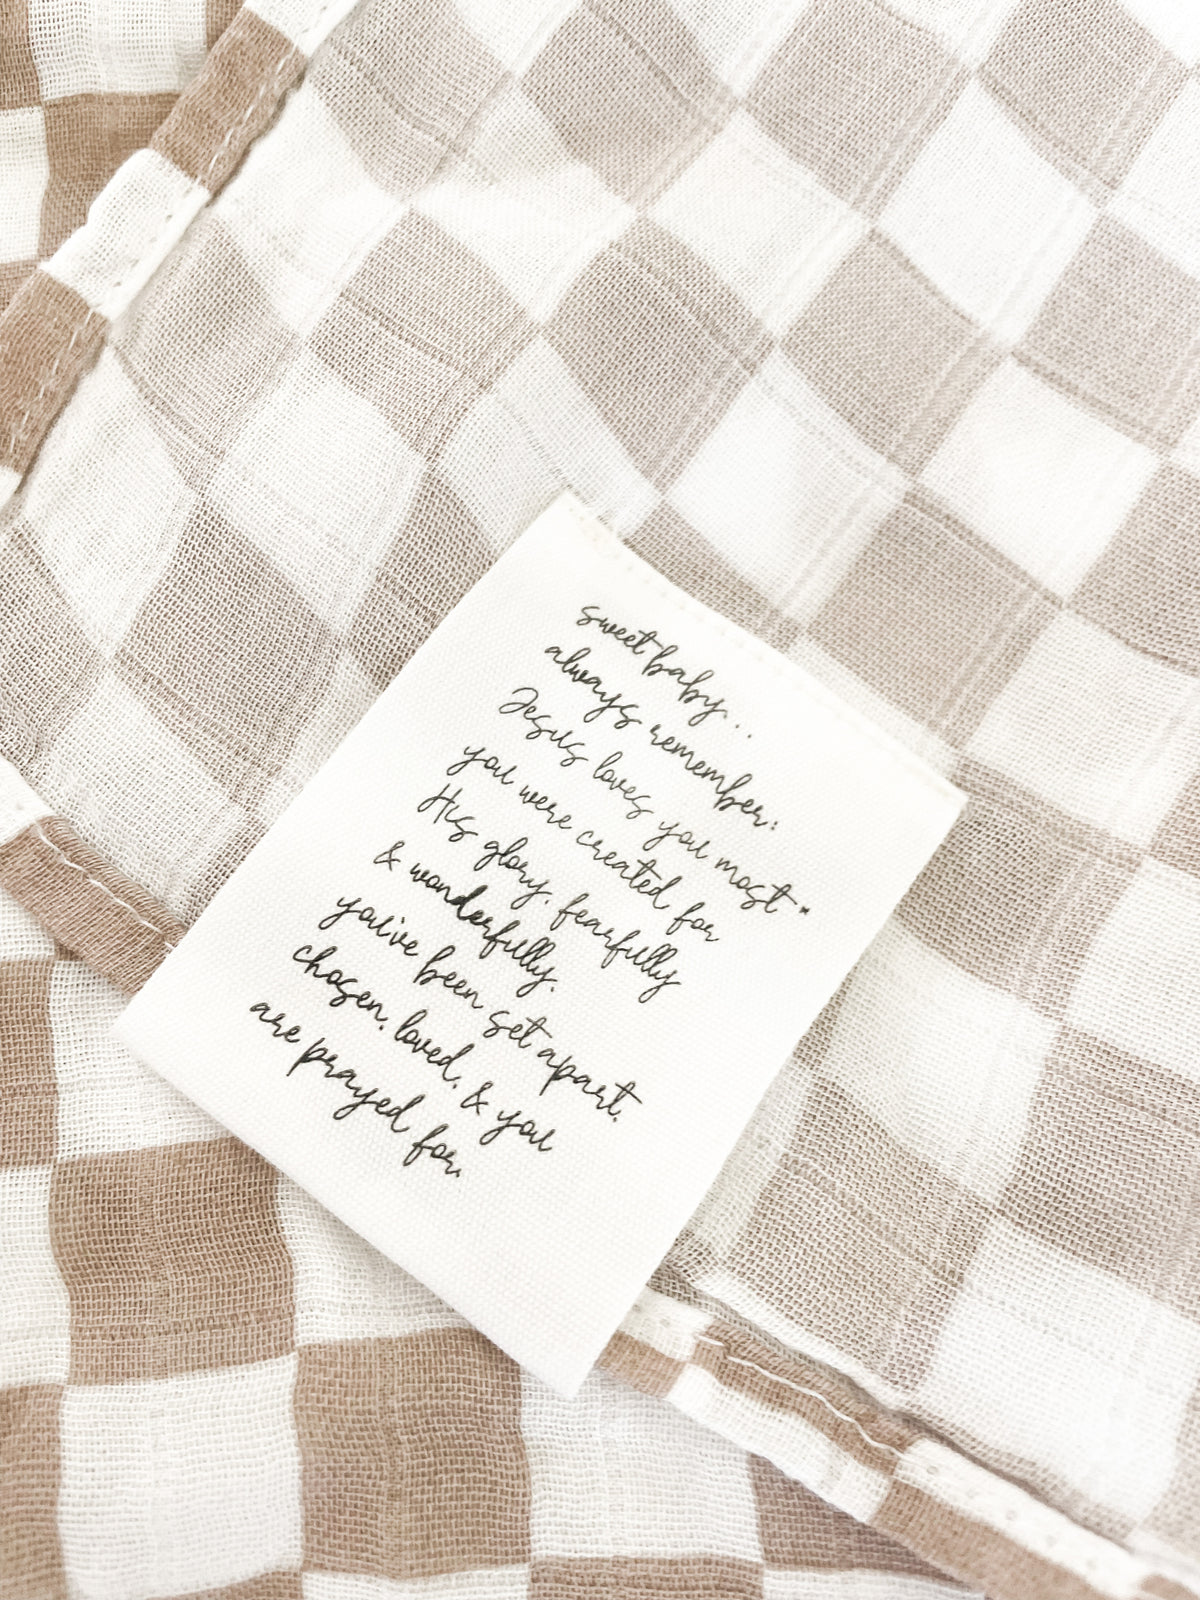 sweet baby...
always remember:
Jesus loves you most.
you were created for
His glory. fearfully
& wonderfully.
you've been set apart.
chosen. loved. & you
are prayed for.